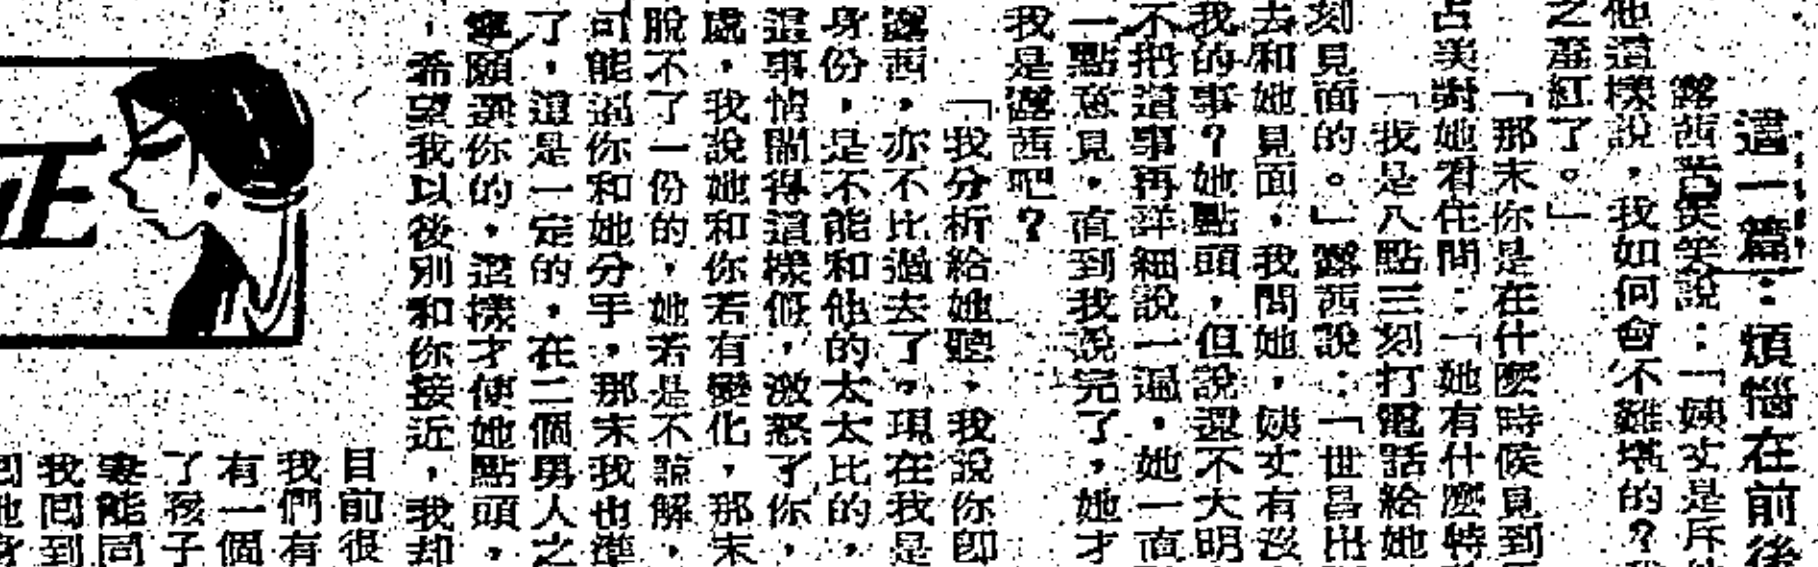 這一篇：煩惱在前後
露茜苦笑笑說：「姨丈是斥
他這樣說，我如何會不難堪的？我
之羞紅了。」
「那末你是在什麼時候見到
占美對她看住問：「她有什麼特
「我是八點三刻打電話給她
刻見面的。」露茜說：「世昌出
去和她見面，我問她，姨丈有沒
我的事？她點頭，但說還不大明
不把這事再詳細說一遍，她一直
一點意見，直到我說完了，她才
我是露茜吧？
「我分析給她聽，我說你卽
露茜，亦不比過去了，現在我是
身份，是不能和他的太太比的，
這事情鬧得這樣僵，激怒了你，
處，我說她和你若有變化，那末
脫不了一份的，她若是不諒解，
可能逼你和她分手，那末我也準
了，這是一定的，在二個男人之
寧願選你的，這樣才使她點頭，
，希望我以後別和你接近，我却
正
目前很
我們有
有一個
了孩子
妻能同
我囘到